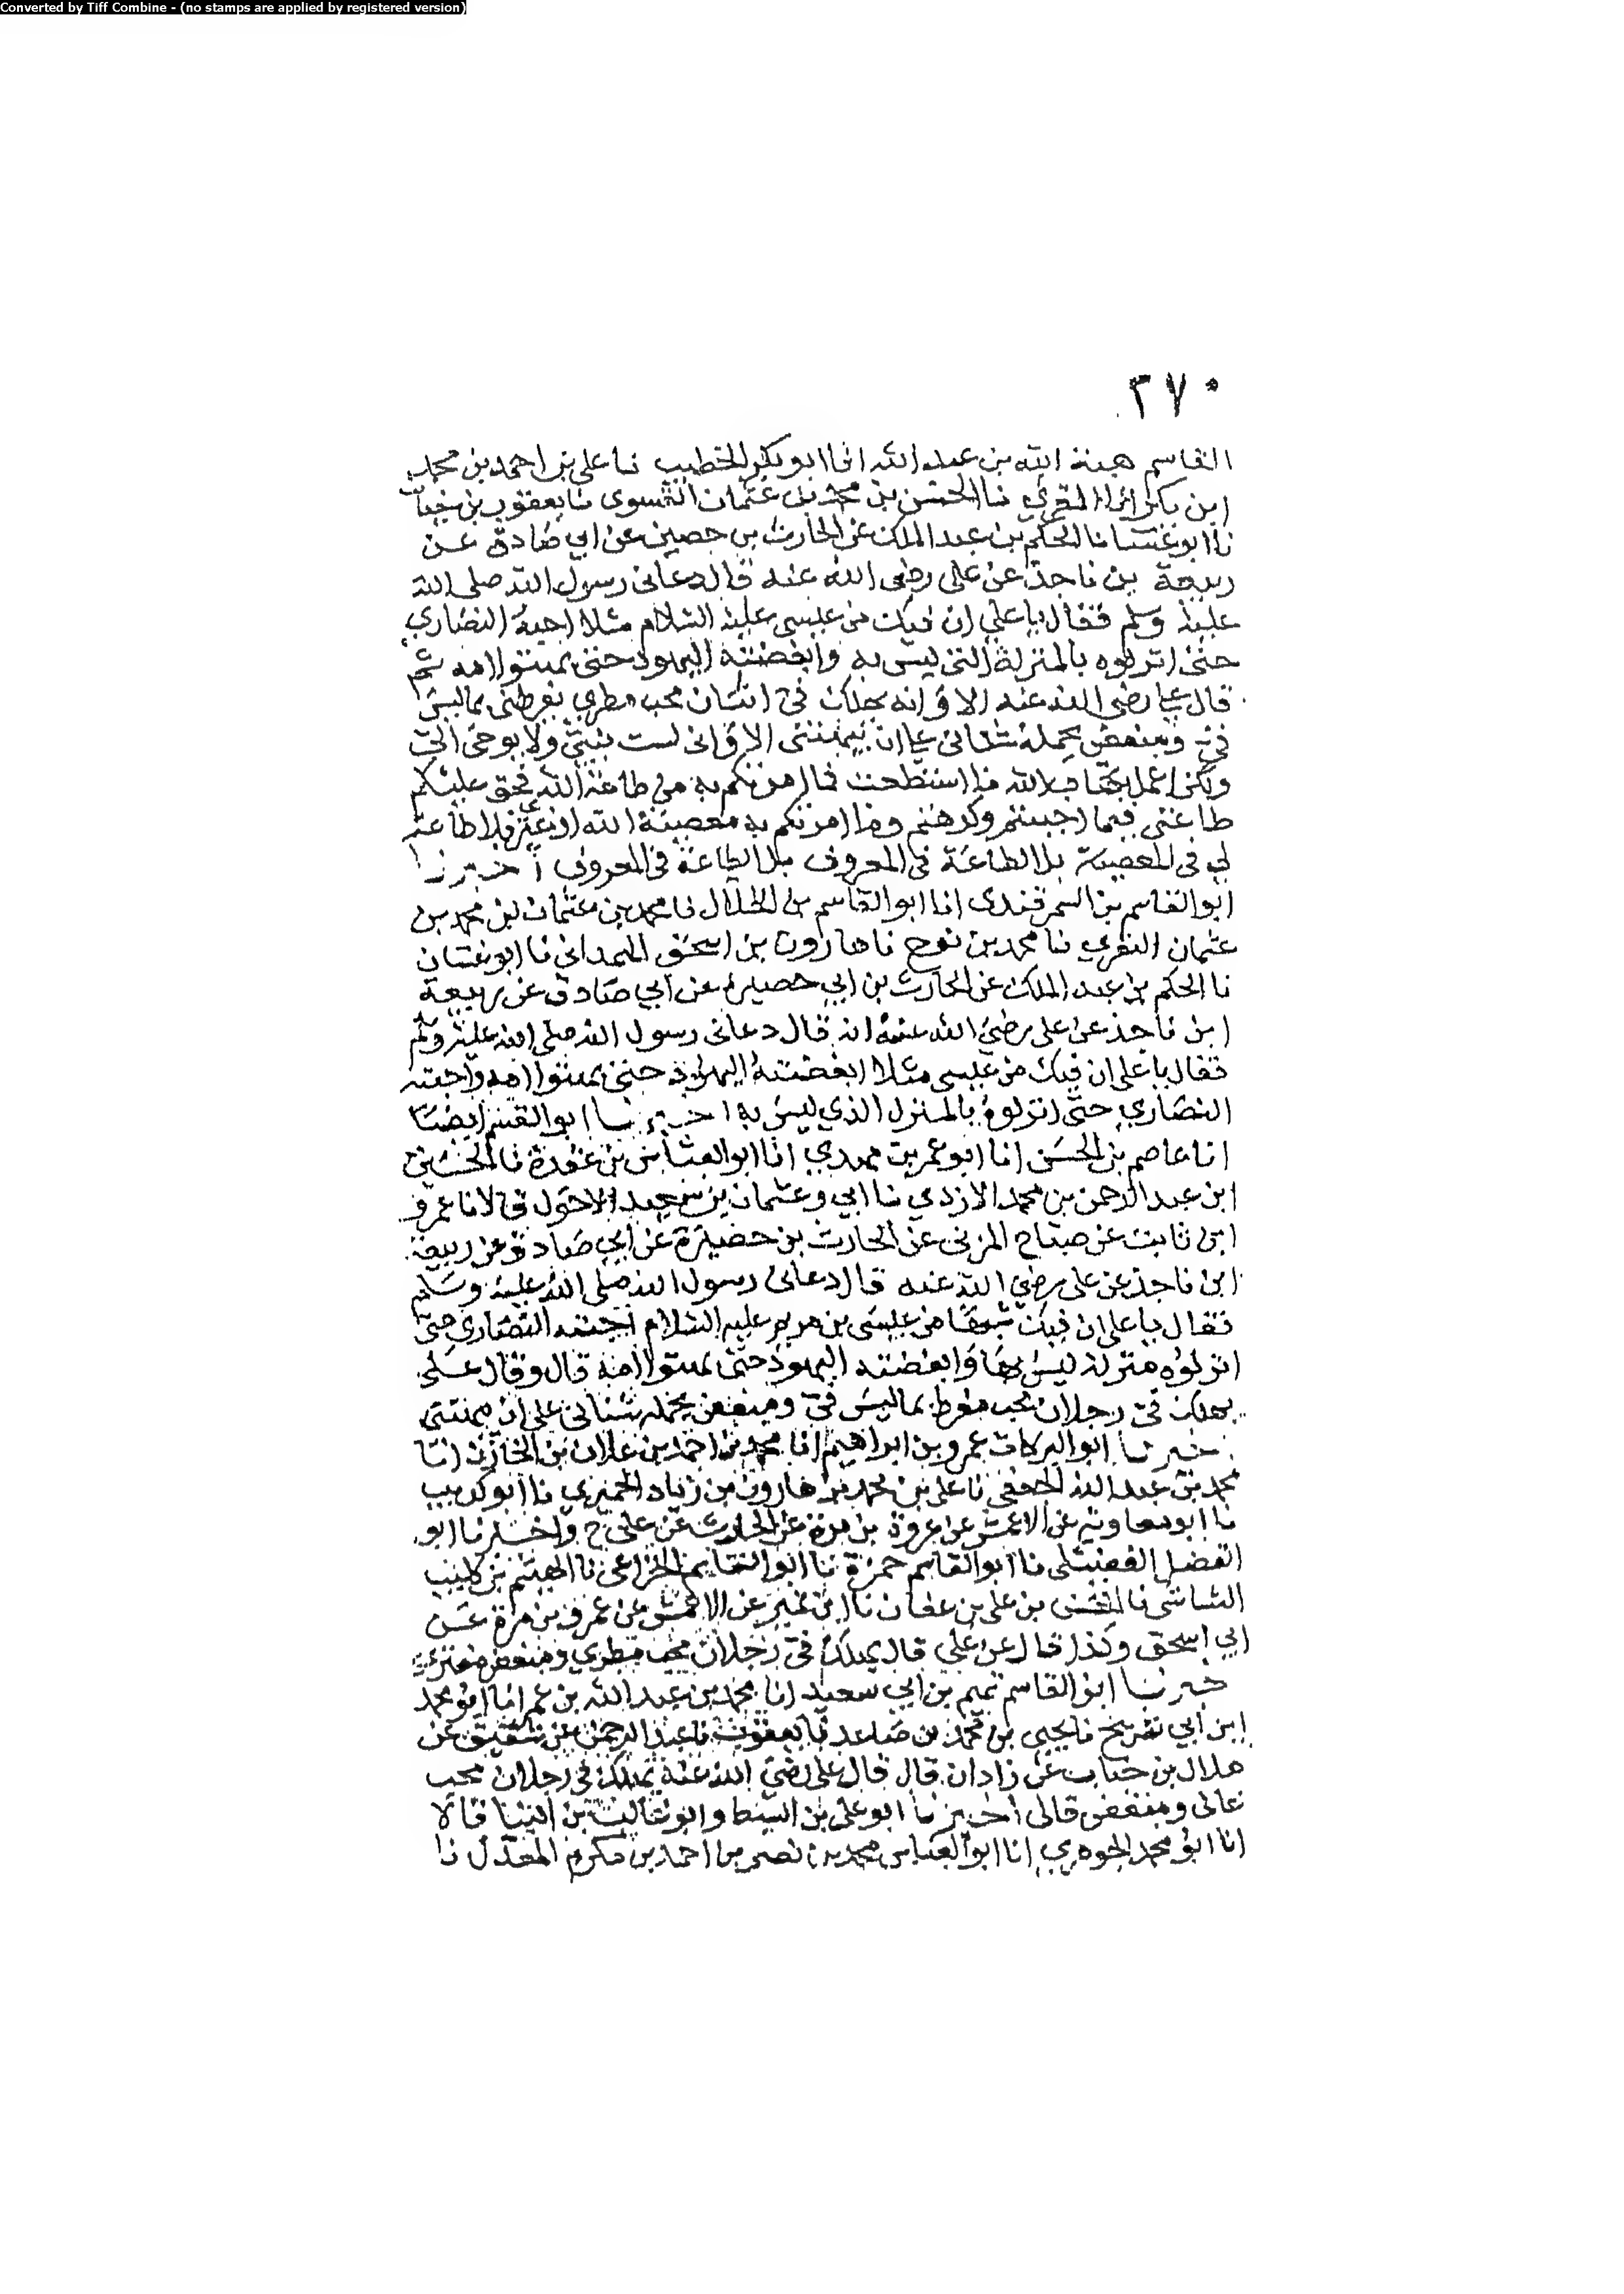 Converted by Tiff Combine - (no stamps are applied by registered version)
٣٧٠
القاسم هبة الله بن عبد الله انا ابو بكر الخطيب نا على بن احمد بن محمد
ابن المقري نا الحسن بن محمد بن عثمان الفسوى نا يعقوب بن
نا ابو غسان نا الحكم بن عبد الملك عن الحارث بن حصين عن ابي صادق عن
ربيعة بن ناجذ عن على رضى الله عنه قال دعانى رسول الله صلى الله
عليه وسلم فقال يا علي ان فيك من عيسى عليه السلام مثلا احبته النصاري
حتى انزلوه بالمنزلة التى ليس به وابغضته اليهود حتى بهتوا امه ثم
قال على رضى الله عنه الا وانه يهلك في اثنان محب مطري يفرطنى بما ليس
في ومبغض يحمله شنانى على ان يبهتنى الا وانى لست بنبي ولا يوحى الي
ولكن اعمل بكتاب الله ما استطعت فما امرتكم به من طاعة الله فحق عليكم
طاعتى فيما احببتم وكرهتم وما امرتكم به معصية الله او غيري فلا طاعة
لي في المعصية بلا الطاعة في المعروف بلا الطاعة في المعروف أخبرنا
ابو القاسم بن السمرقندى انا ابو القاسم بن الخلال نا محمد بن عثمان بن محمد بن
عثمان النفري نا محمد بن نوح نا هارون بن اسحق الهمدانى نا ابو غسان
نا الحكم بن عبد الملك عن الحارث بن ابي حصيرة عن ابي صادق عن ربيعة
ابن ناجذ عن على رضي الله عنه انه قال دعانى رسول الله صلى الله عليه وسلم
فقال يا على ان فيك من عيسى مثلا ابغضته اليهود حتى بهتوا امه واحبته
النصاري حتى انزلوه بالمنزل الذي ليس به اخبرنا ابو القسم ايضا
انا عاصم بن الحسن انا ابو عمر بن مهدي انا ابو العباس بن عقدة نا الحسين
ابن عبد الرحمن بن محمد الازدي نا ابي وعثمان بن سعيد الاحول قالا نا عمرو
ابن ثابت عن صباح المزنى عن الحارث بن حضيرة عن ابي صادق عن ربيعة
ابن ناجذ عن على رضي الله عنه قال دعانى رسول الله صلى الله عليه وسلم
فقال يا على ان فيك شبها من عيسى بن مريم عليه السلام احبته النصاري حتى
انزلوه منزلة ليس بها وابغضته اليهود حتى بهتوا امه قال وقال على
يهلك في رجلان محب مفرط بما ليس في ومبغض يحمله شنانى على ان يبهتنى
خبرنا ابو البركات عمرو بن ابراهيم انا محمد بن احمد بن علان بن الخازن انا
محمد بن عبد الله الجعفي نا على بن محمد بن هارون بن زياد الحميري نا ابو كريب
نا ابو معاوية عن الاعمش عن عمرو بن مرة عن الحارث عن على ح واخبرنا ابو
الفضل الفضيلى نا ابو القاسم حمزة نا ابو القاسم الخزاعى نا الهيثم بن كليب
الشاشى نا الحسن بن على بن عفان نا ابن نمير عن الاعمش عن عمرو بن مرة عن
ابي اسحق وكذا قال عن علي قال يهلك في رجلان محب مطري ومبغض مفتري
خبرنا ابو القاسم تميم بن ابي سعيد انا محمد بن عبد الله بن عمر انا ابو محمد
ابن ابي شريح نا يحيى بن محمد بن صاعد نا يعقوب نا عبد الرحمن عن شقيق عن
هلال بن خباب عن زادان قال قال على رضي الله عنه يهلك في رجلان محب
غالى ومبغض قالى أخبرنا ابو على بن السبط وابو غالب بن البنا قالا
انا ابو محمد الجوهري انا ابو العباس محمد بن نصر بن احمد بن مكرم المعدل نا